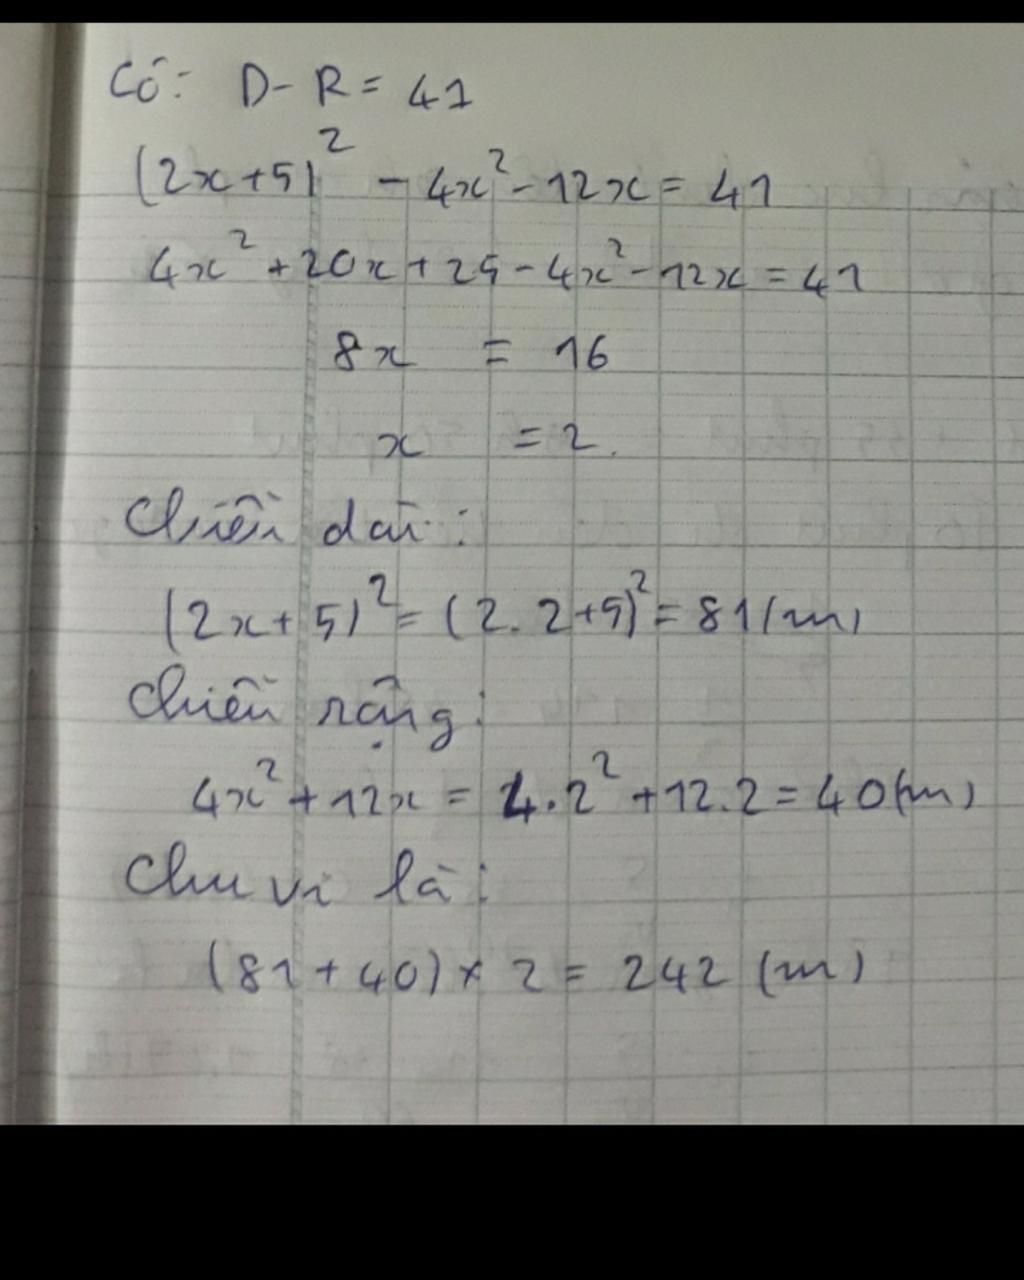 Có: D - R = 41
(2x+5)² - 4x² - 12x = 41
4x² + 20x + 25 - 4x² - 12x = 41
8x = 16
x = 2.
Chiều dài:
(2x+5)² = (2.2+5)² = 81(m)
Chiều rộng:
4x² + 12x = 4.2² + 12.2 = 40(m)
Chu vi là:
(81+40) × 2 = 242 (m)